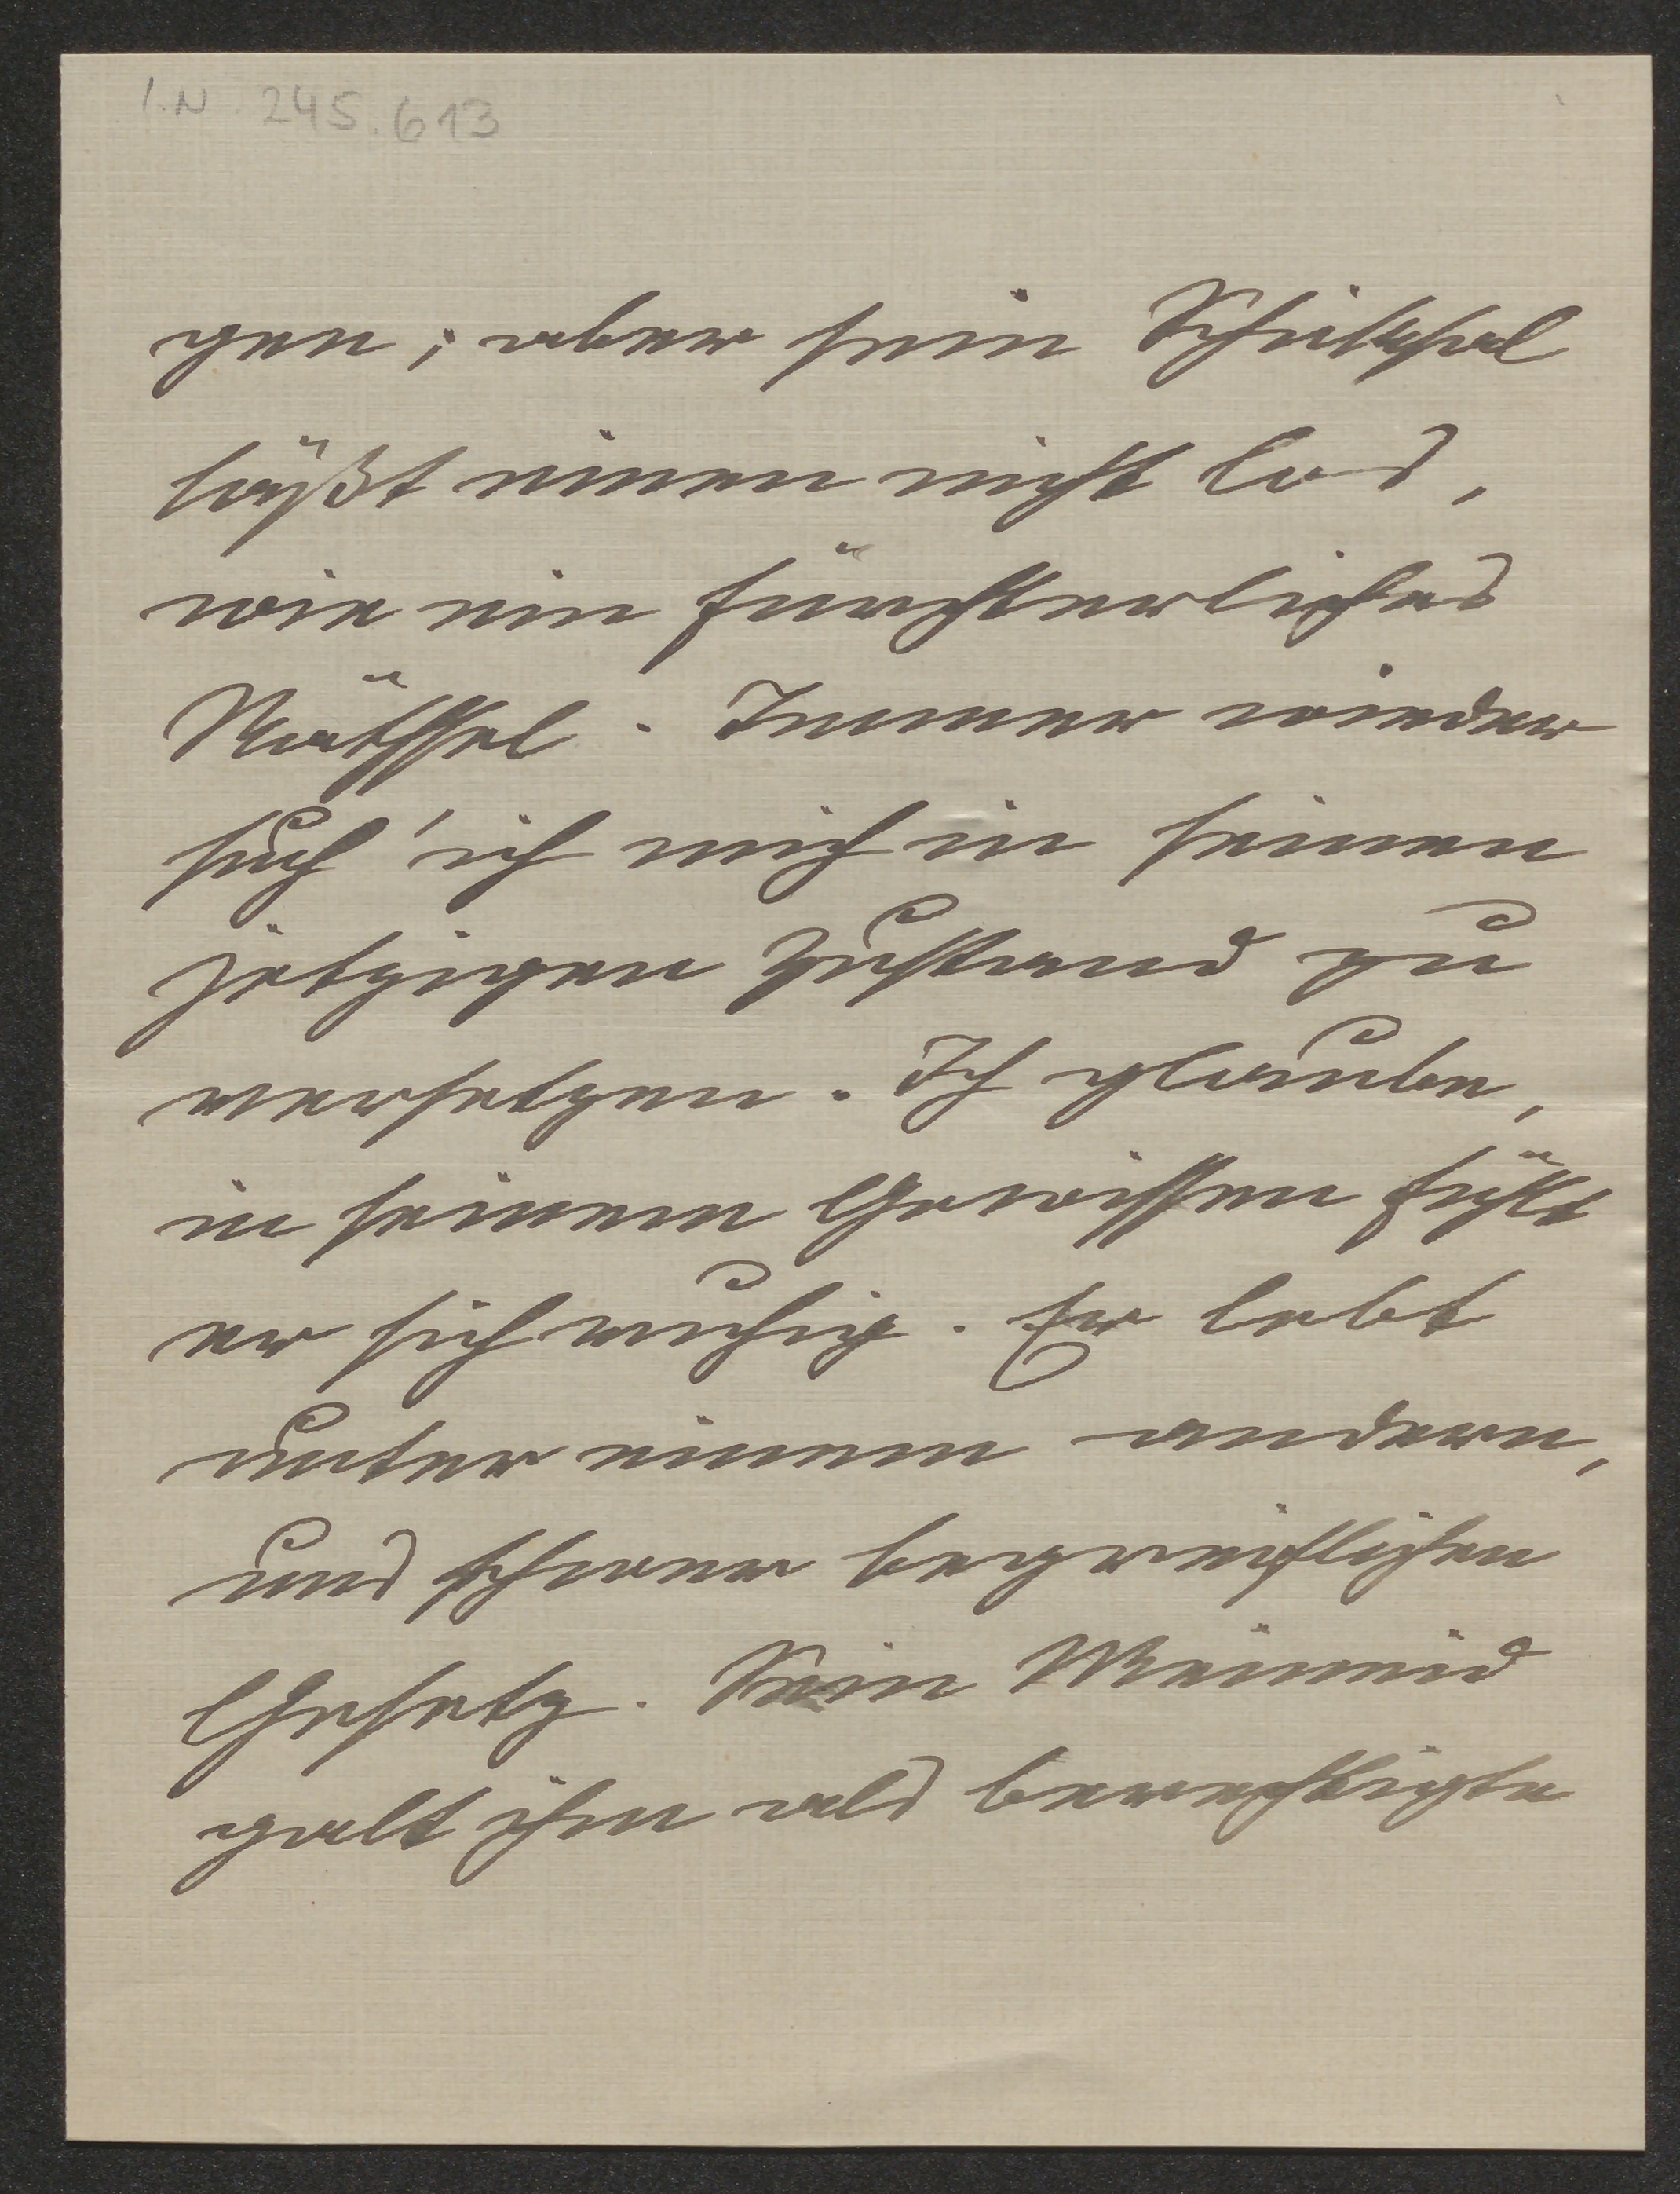 I.N. 245.613
gen; aber sein Schicksal
läßt einen nicht los,
wie ein fürchterliches
Räthsel. Immer wieder
such' ich mich in seinen
jetzigen Zustand zu
versetzen. Ich glaube,
in seinem Gewissen fühlt
er sich ruhig. Er lebt
unter einem andern,
uns schwer begreiflichen
Gesetz. Sein Meineid
galt ihm als berechtigte